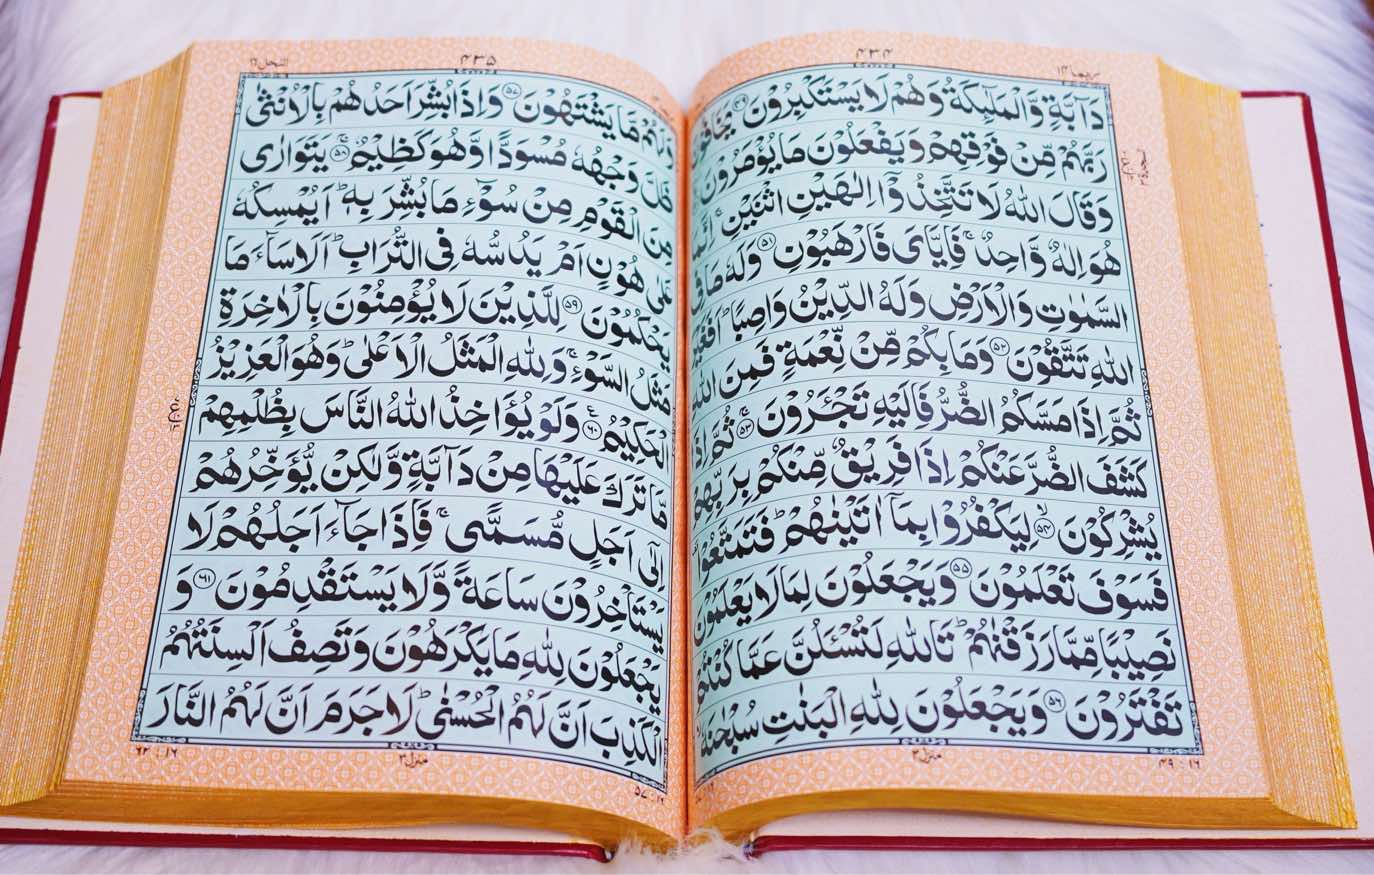 ۴۳۴
ربما ۱۴
دَآبَّةٍ وَّالْمَلٰٓئِكَةُ وَهُمْ لَا يَسْتَكْبِرُوْنَ ۴۹ يَخَافُوْنَ
رَبَّهُمْ مِّنْ فَوْقِهِمْ وَيَفْعَلُوْنَ مَا يُؤْمَرُوْنَ
وَقَالَ اللّٰهُ لَا تَتَّخِذُوْٓا اِلٰهَيْنِ اثْنَيْنِ ۚ اِنَّمَا
هُوَ اِلٰهٌ وَّاحِدٌ ۚ فَاِيَّايَ فَارْهَبُوْنِ ۵۱ وَلَهٗ مَا فِى
السَّمٰوٰتِ وَالْاَرْضِ وَلَهُ الدِّيْنُ وَاصِبًا ؕ اَفَغَيْرَ
اللّٰهِ تَتَّقُوْنَ ۵۲ وَمَا بِكُمْ مِّنْ نِّعْمَةٍ فَمِنَ اللّٰهِ
ثُمَّ اِذَا مَسَّكُمُ الضُّرُّ فَاِلَيْهِ تَجْئَرُوْنَ ۚ ۵۳ ثُمَّ اِذَا
كَشَفَ الضُّرَّ عَنْكُمْ اِذَا فَرِيْقٌ مِّنْكُمْ بِرَبِّهِمْ
يُشْرِكُوْنَ ۙ ۵۴ لِيَكْفُرُوْا بِمَآ اٰتَيْنٰهُمْ ؕ فَتَمَتَّعُوْا
فَسَوْفَ تَعْلَمُوْنَ ۵۵ وَيَجْعَلُوْنَ لِمَا لَا يَعْلَمُوْنَ
نَصِيْبًا مِّمَّا رَزَقْنٰهُمْ ؕ تَاللّٰهِ لَتُسْئَلُنَّ عَمَّا كُنْتُمْ
تَفْتَرُوْنَ ۵۶ وَيَجْعَلُوْنَ لِلّٰهِ الْبَنٰتِ سُبْحٰنَهٗ
منزل ۳
۴۹ : ۱۶
۴۳۵
النحل ۱۶
وَلَهُمْ مَّا يَشْتَهُوْنَ ۵۷ وَاِذَا بُشِّرَ اَحَدُهُمْ بِالْاُنْثٰى
ظَلَّ وَجْهُهٗ مُسْوَدًّا وَّهُوَ كَظِيْمٌ ۚ ۵۸ يَتَوَارٰى
مِنَ الْقَوْمِ مِنْ سُوْٓءِ مَا بُشِّرَ بِهٖ ؕ اَيُمْسِكُهٗ
عَلٰى هُوْنٍ اَمْ يَدُسُّهٗ فِى التُّرَابِ ؕ اَلَا سَآءَ مَا
يَحْكُمُوْنَ ۵۹ لِلَّذِيْنَ لَا يُؤْمِنُوْنَ بِالْاٰخِرَةِ
مَثَلُ السَّوْءِ ۚ وَلِلّٰهِ الْمَثَلُ الْاَعْلٰى ؕ وَهُوَ الْعَزِيْزُ
الْحَكِيْمُ ۶۰ وَلَوْ يُؤَاخِذُ اللّٰهُ النَّاسَ بِظُلْمِهِمْ
مَّا تَرَكَ عَلَيْهَا مِنْ دَآبَّةٍ وَّلٰكِنْ يُّؤَخِّرُهُمْ
اِلٰٓى اَجَلٍ مُّسَمًّى ۚ فَاِذَا جَآءَ اَجَلُهُمْ لَا
يَسْتَاْخِرُوْنَ سَاعَةً وَّلَا يَسْتَقْدِمُوْنَ ۶۱ وَ
يَجْعَلُوْنَ لِلّٰهِ مَا يَكْرَهُوْنَ وَتَصِفُ اَلْسِنَتُهُمُ
الْكَذِبَ اَنَّ لَهُمُ الْحُسْنٰى ؕ لَا جَرَمَ اَنَّ لَهُمُ النَّارَ
منزل ۳
۵۷ : ۱۶
۶۲ : ۱۶